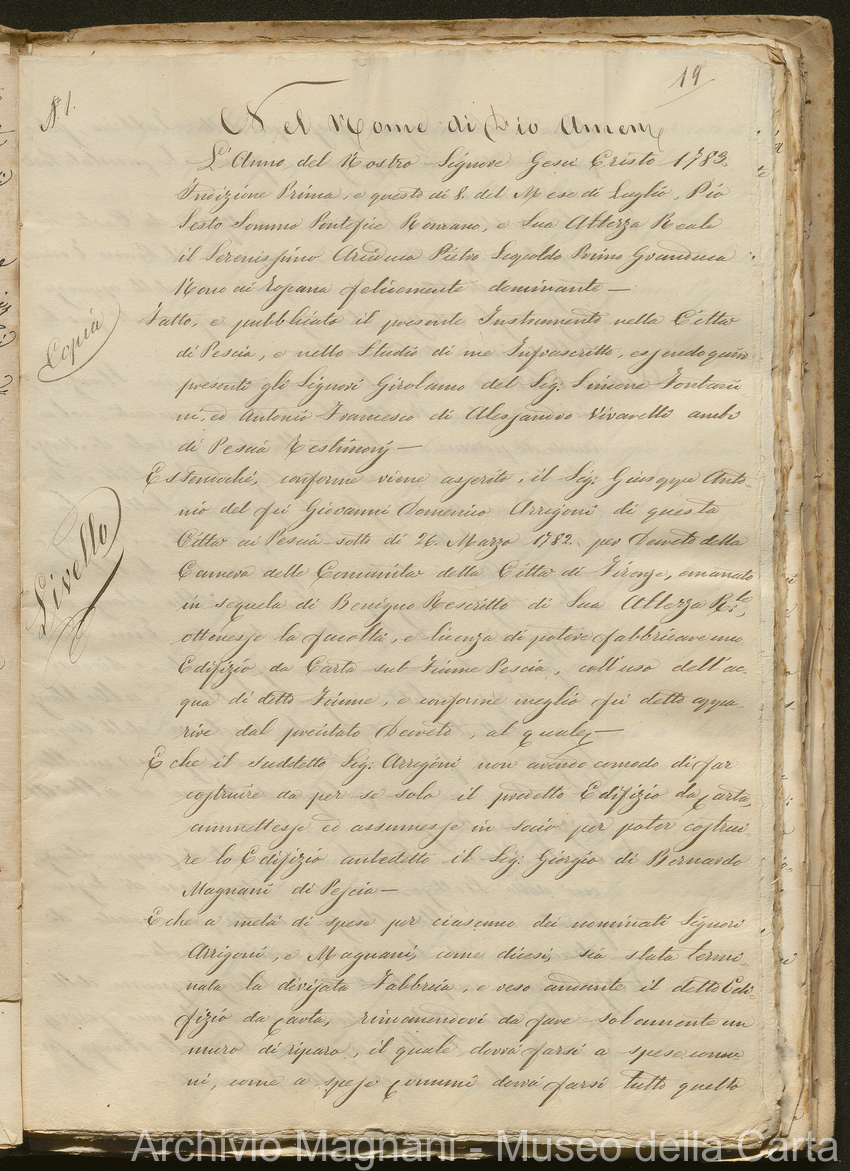 19
N.° 1.
Nel Nome di Dio Amen
L'Anno del Nostro Signore Gesù Cristo 1783.
Indizione Prima, e questo dì 8. del Mese di Luglio, Pio
Sesto Sommo Pontefice Romano, e Sua Altezza Reale
il Serenissimo Arciduca Pietro Leopoldo Primo Granduca
Nono di Toscana felicemente dominante —
Fatto, e pubblicato il presente Instrumento nella Città
di Pescia, e nello Studio di me Infrascritto, essendo quivi
presenti gli Signori Girolamo del Sig: Simone Fontani
ni, ed Antonio Francesco di Alessandro Vivarelli ambi
di Pescia Testimonj —
Copia
Essendochè, conforme viene asserito, il Sig: Giuseppe Anto-
nio del fù Giovanni Domenico Arrigoni di questa
Città di Pescia sotto dì 26. Marzo 1782. per Decreto della
Camera delle Comunità della Città di Firenze, emanato
in sequela di Benigno Rescritto di Sua Altezza R:le,
ottenesse la facoltà, e licenza di potere fabbricare uno
Edifizio da Carta sul Fiume Pescia, coll'uso dell'ac-
qua di detto Fiume, e conforme meglio fù detto appa-
rire dal precitato Decreto, al quale —
Livello
E che il suddetto Sig: Arrigoni non avendo comodo di far
costruire da per se solo il predetto Edifizio da Carta,
ammettesse ed assumesse in socio per poter costrui
re lo Edifizio antedetto il Sig: Giorgio di Bernardo
Magnani di Pescia —
E che a metà di spese per ciascuno dei nominati Signori
Arrigoni, e Magnani, come dicesi, sia stata termi-
nata la divisata Fabbrica, e reso andante il detto Edi-
fizio da Carta, rimanendovi da fare solamente un
muro di riparo, il quale dovrà farsi a spese comu
ni, come a spese comuni dovrà farsi tutto quello
Archivio Magnani - Museo della Carta